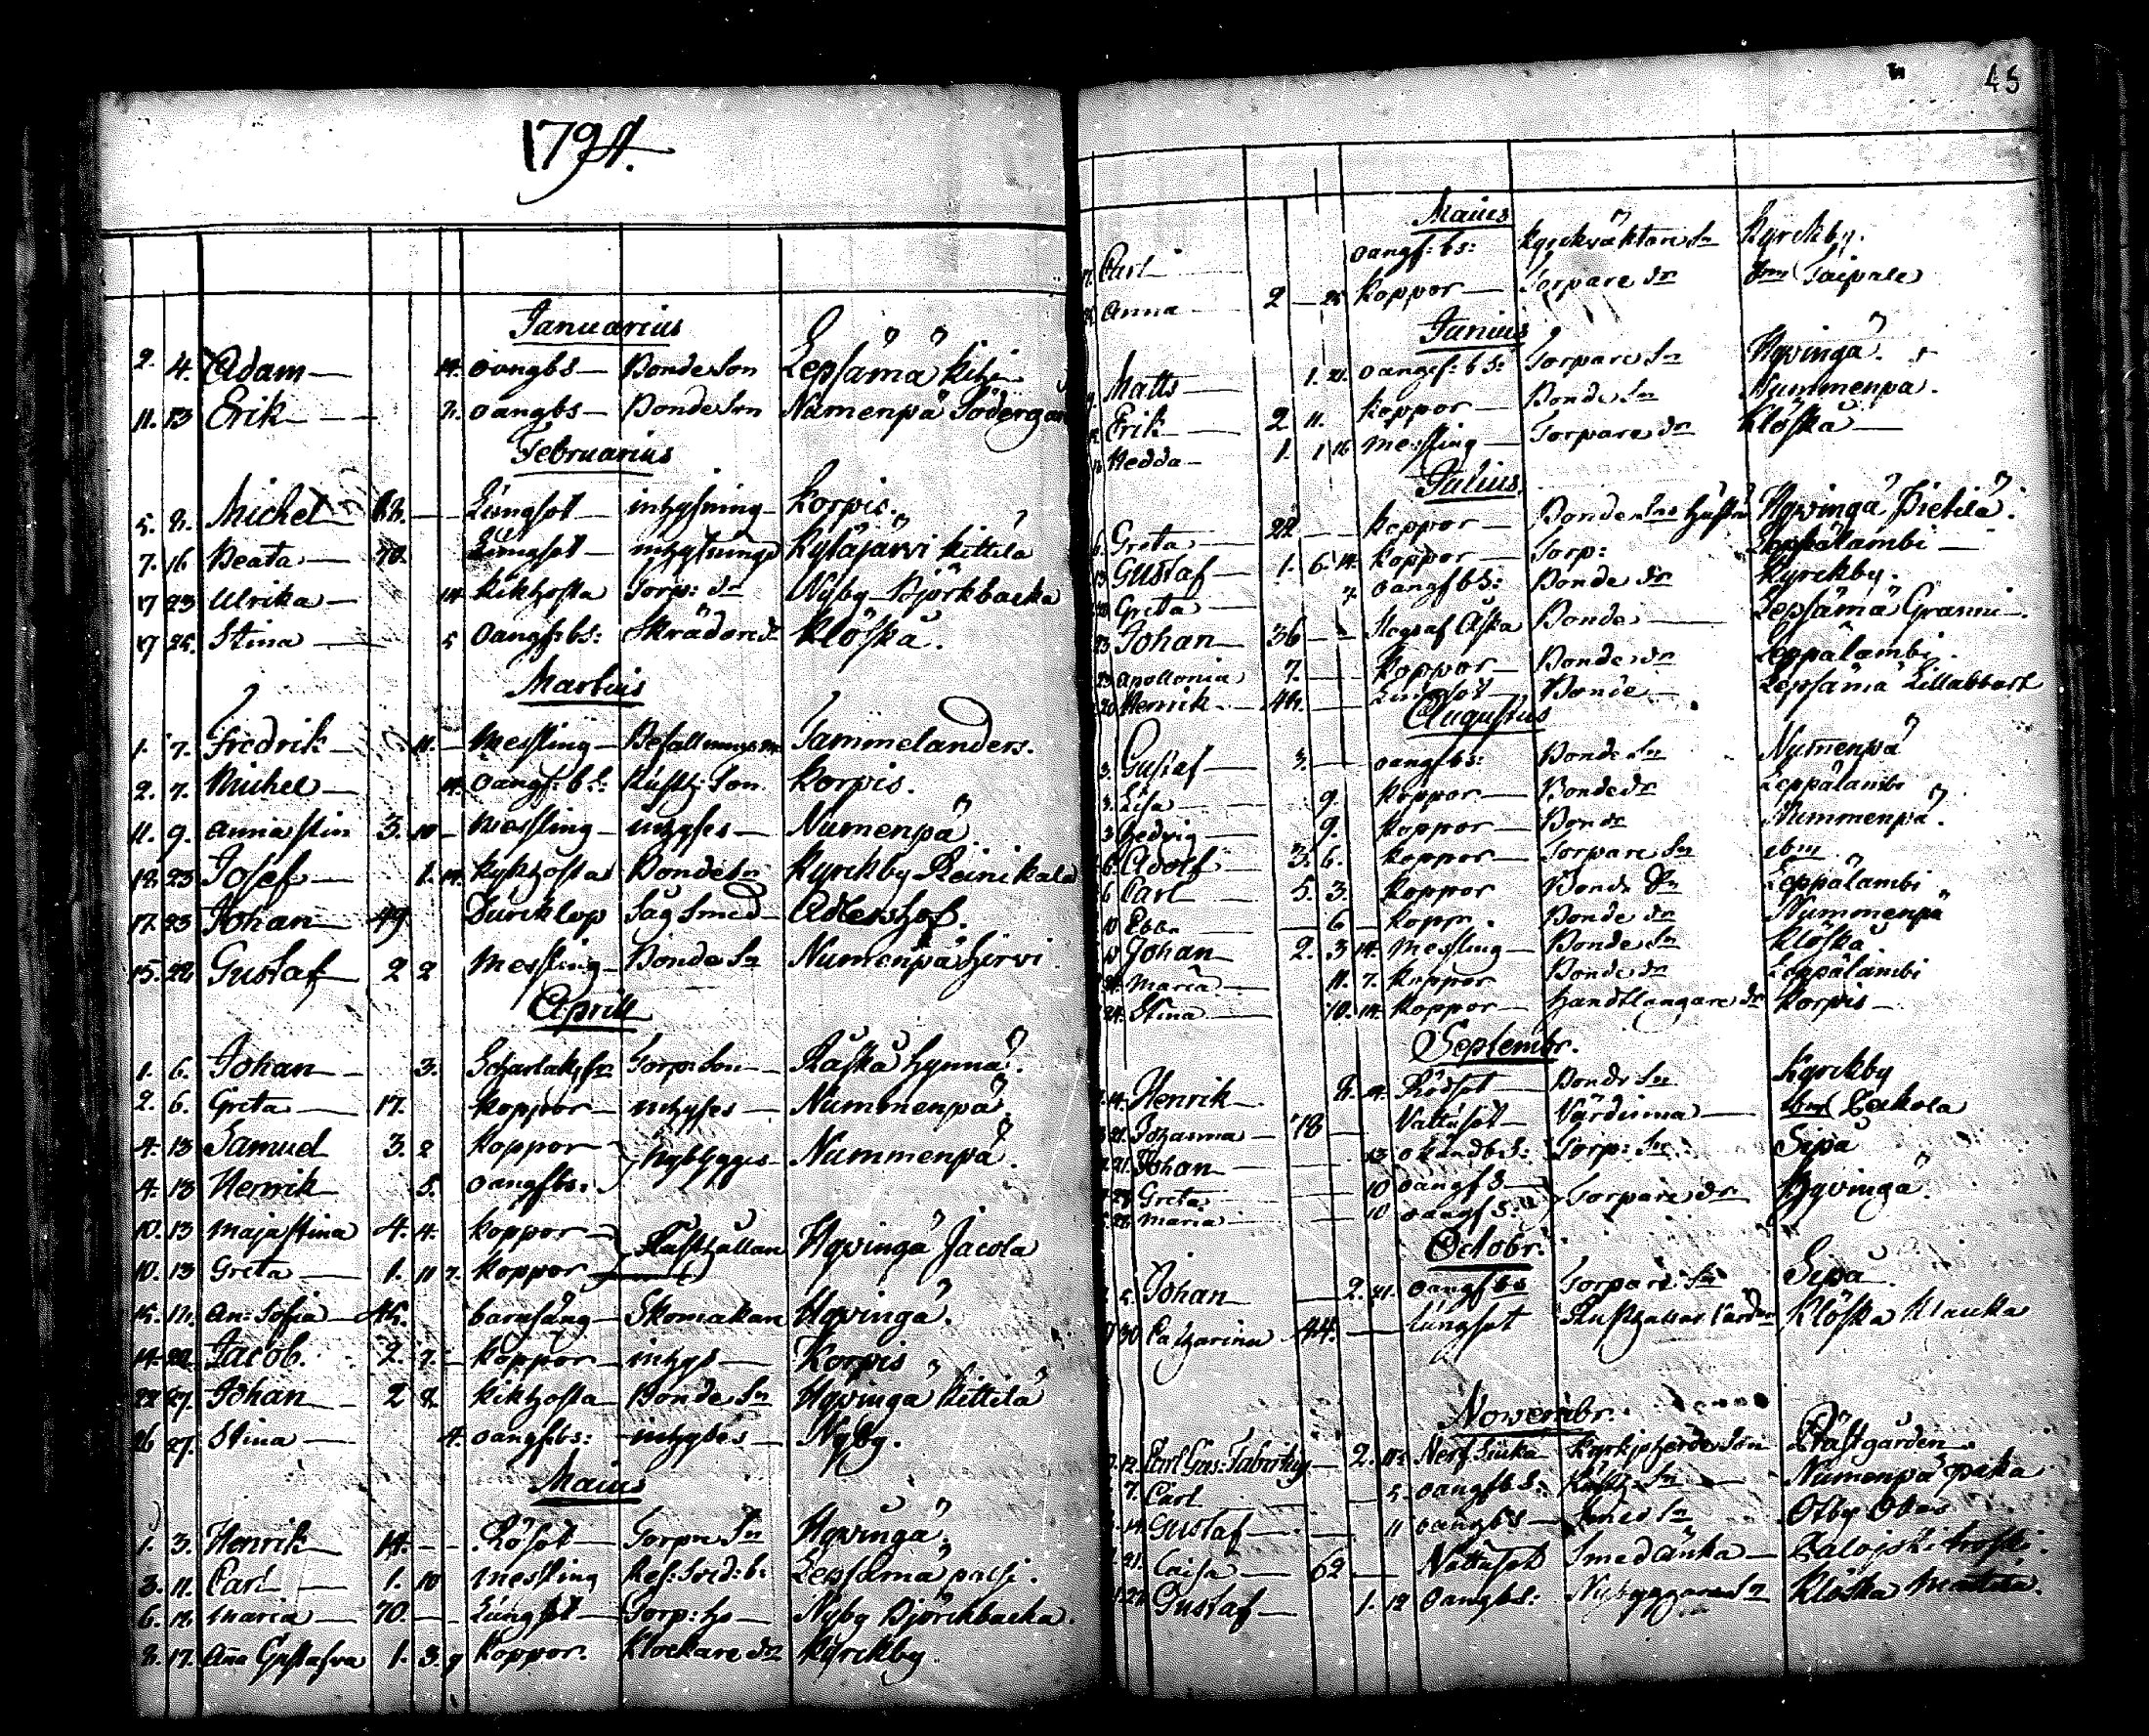 1794.
Januarius
2. 4. Adam — 14. oangbs — Bonde Son Lepsämä Kihi
11. 13 Erik — 2. oangbs — Bonde Son Numenpä Södergår
Februarius
5. 8. Michel — Lungsot — inhysning — Korpis.
7. 16 Beata — 70. Lungsot — inhysnings Kytäjärvi Kittilä
17 23 Ulrika — 14 Kikhosta Torp: dr Nyby Björkbacka
17 25. Stina — 5 Oangf: bs: Skrädare dr Klöfskå.
Martius
1. 7. Fredrik — 11. — Messling — Befallnings Tammelanders.
2. 7. Michel — 14. oangf: b.s: Rusth: Son Korpis.
11. 9. Anna Stin 3. 10 — Messling — inhyses — Numenpä
12. 23 Josef — 1. 14. Kykhosta Bonde Sn Kyrckby Reinikala
17. 23 Johan — 49 Såg Smed — Adlershof.
15. 22 Gustaf — 2 2 Messling — Bonde Sn Numenpä Hirvi
Aprill
1. 6. Johan — 3. Scharlaksfr Torp: Son — Råskå Hynnä.
2. 6. Greta — 17. Koppor — inhyses — Nummenpä
4. 13 Samuel 3. 2 Koppor — Nybygges — Nummenpä.
4. 13 Henrik 5. oangfbs:
10. 13 Maja Stina 4. 4. Koppor — Rusthållan Hyvingä Jacola
10. 13 Greta — 1. 11 7. Koppor
15. 17. An: Sofia — 45. barnsäng — Skomakan Hyvingä.
14. 22. Jacob. 2. 7. — Koppor — inhys — Korpis
22 27. Johan — 2 2 Kikhosta Bonde Sn Hyvingä Kittilä
26 27. Stina — 4. oangfbs: inhyses — Nyby.
Maius
1. 3. Henrik — 14. — Rösot — Torpre Sn Hyvingä
3. 11. Carl — 1. 10 Messling Lepsämä
6. 12. Maria — 70. — Lungsot — Torp: ho — Nyby Björckbacka.
8. 17. Aña Gustafva 1. 3. 9 Koppor. Klockare dr Kyrckby
45
Maius
Carl — oangf: bs: Kyrckväktare Sn Kyrckby.
Anna — 2 — 25 Koppor — Torpare dr Ibm Taipale
Junius
Matts — 1. 21. oangf: bs: Torpare Sn Hyvingä.
Erik — 2 11. Koppor — Bonde Sn Nummenpä.
Hedda — 1. 1 16 Messling — Torpare dr Klöfskå —
Julius.
Greta — 22 — Koppor — Bonde Sns Hustru Hyvingä Pietilä.
13 Gustaf — 1. 6. 14. Koppor — Torp: Leppälambi —
Greta — 7. oangfbs: Bonde dr Kyrckby.
23 Johan — 36 — Slogs af Åska Bonde — Lepsämä Granni.
23 Apollonia 7. — Koppor — Bonde dr Leppälambi.
20 Henrik — Lungsot — Bonde — Lepsämä Lillabbart
Augustus
3. Gustaf — 3. — oangfbs: Bonde Sn Nummenpä
3. Lisa — 9. Koppor — Bonde dr Leppälambi
3 Hedvig — 9. Koppor — Bonde Nummenpä.
6. Adolf — 3. 6. Koppor — Torpare Sn ibm
6 Carl — 5. 3. Koppor Bonde Sn Leppälambi
10 Ebba — 6 — Koppr. Bonde dr Nummenpä
Johan — 2. 3 14. Messling — Bonde Sn Klöfskå
Maria — 11. 7. Koppor Bonde dr Leppälambi
24. Stina — 10. 14. Koppor — Handtlangare dr Korpis —
Septembr.
14. Henrik — 8. Rödsot — Bonde Sn Kyrckby
21. Johanna — 78 — Vattusot — Värdinna — ibm Lakola
21. Johan — 13 okändbs: Torp: Sn Sipå
Greta — 10 oangfs — Torpare dr Hyvingä.
Maria — 10 oangfs:
Octobr.
Johan — 2. 21. oangfbs Torpare Sn Sipå
30 Catharina 44. — Lungsot Klöfskå Klauka
Novembr.
12. Carl Gus: 2. Nerf Siuka Kyrkjoherde Son Prästgården
7. Carl — 5. oangfbs: Rusth: Sn — Numenpä
14 Gustaf — 11 oangbs — Smed Sn Otby
21. Caisa — 62 — Vattusot Smed änka — Palojoki
27 Gustaf — 1. 12 oangbs: Nybyggares Sn Klöfskå